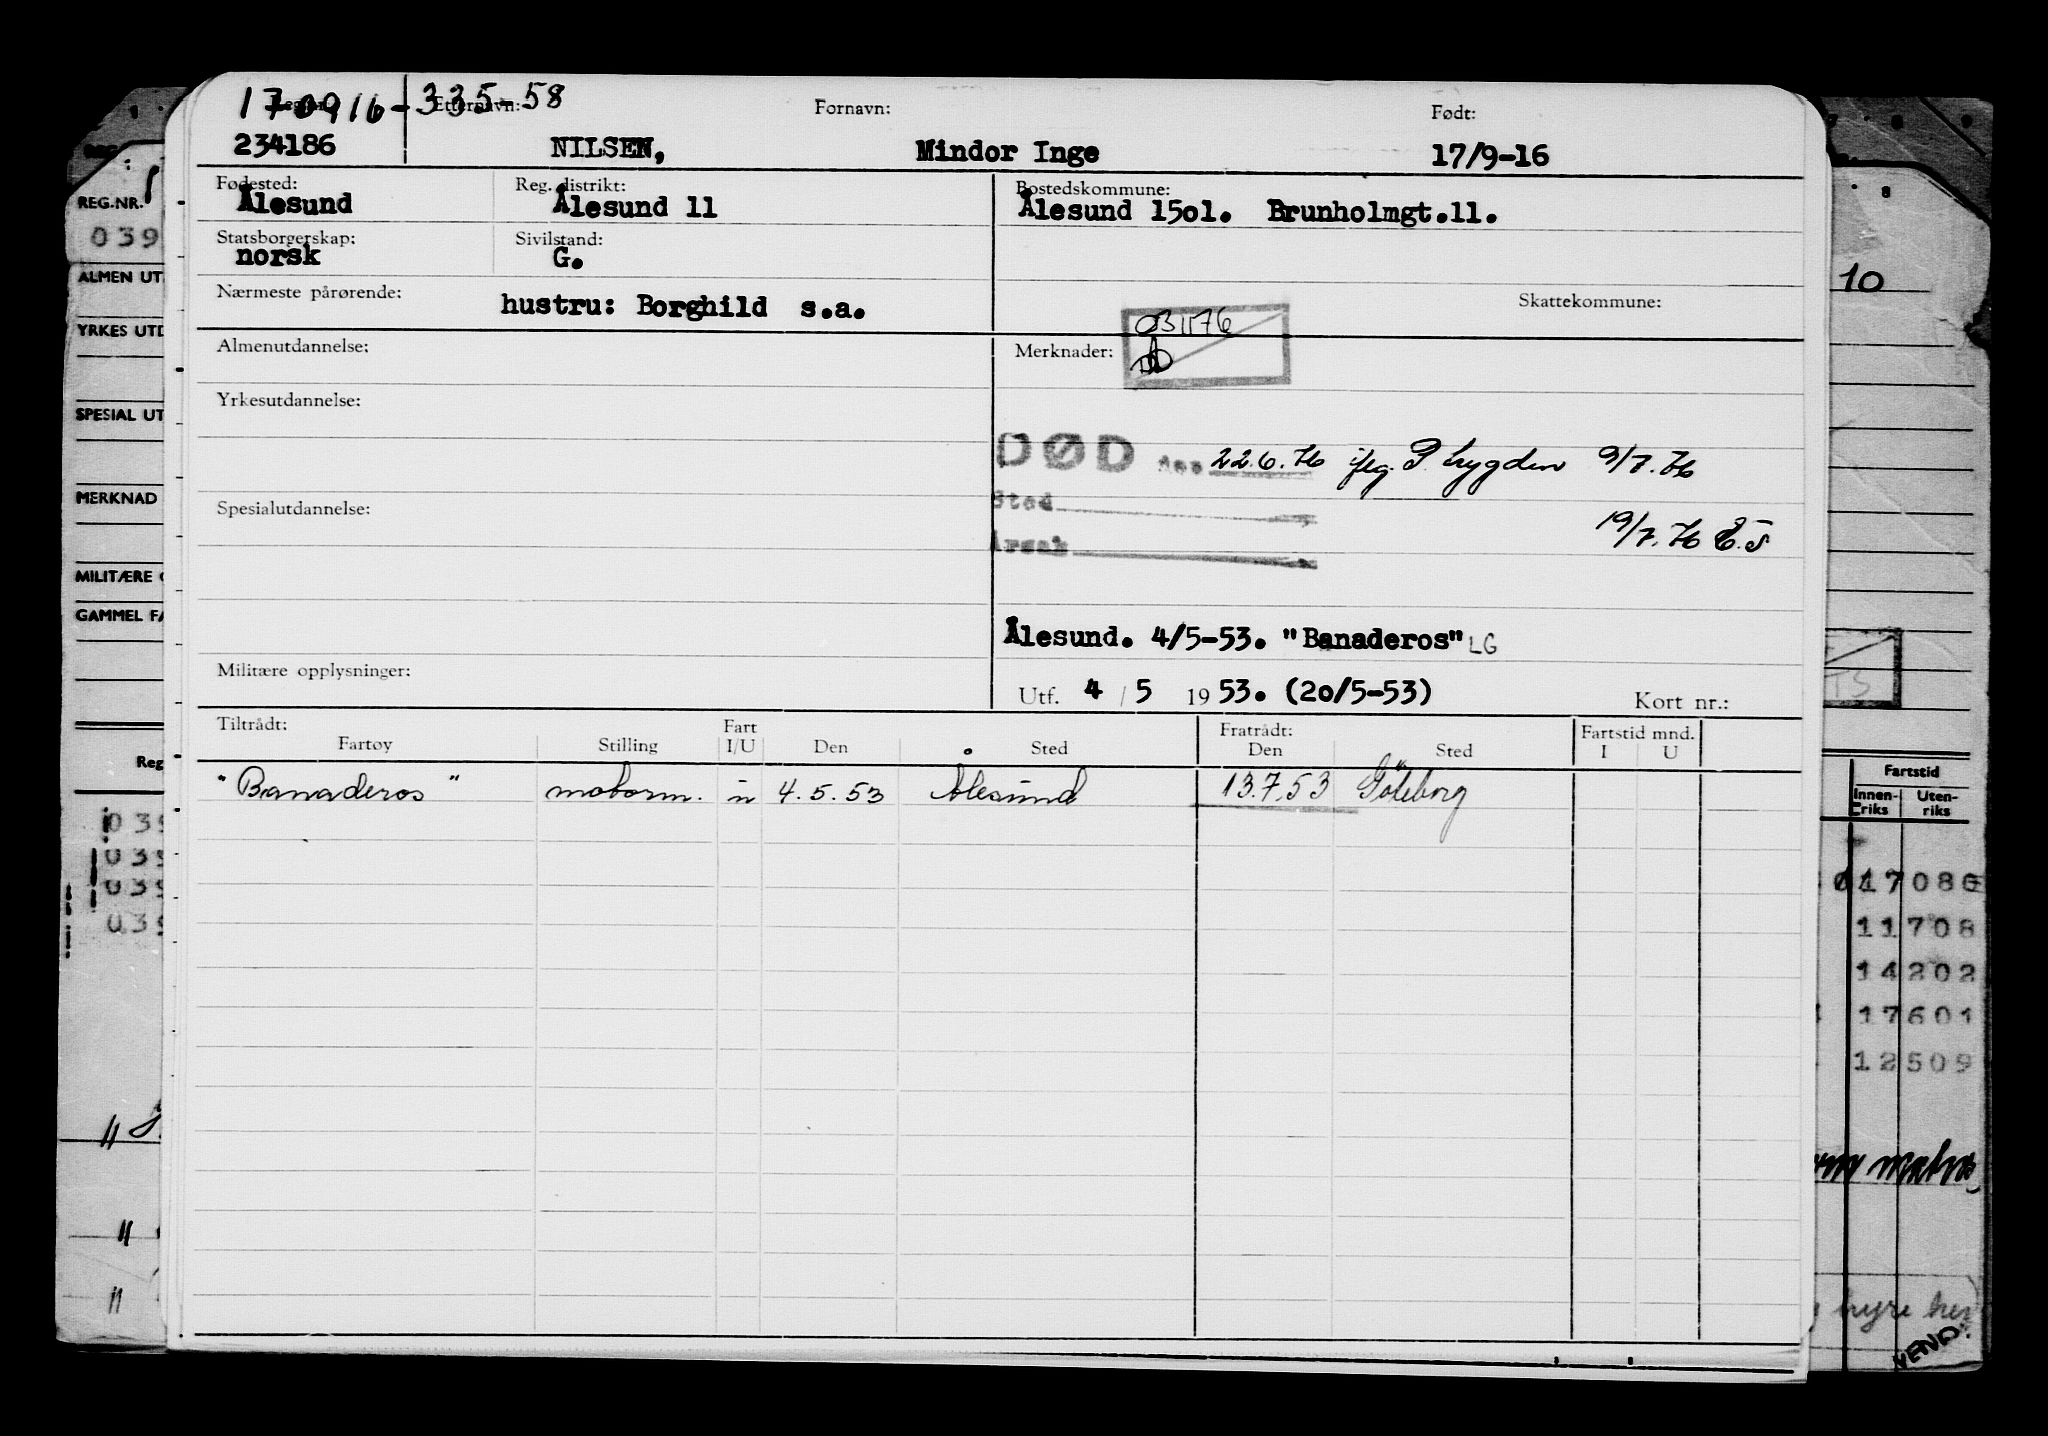 170916-335-58
Etternavn:
Fornavn:
Født:
234186
NILSEN,
Mindor Inge
17/9-16
Fødested:
Reg. distrikt:
Bostedskommune:
Ålesund
Ålesund 11
Ålesund 15o1. Brunholmgt.11.
Statsborgerskap:
Sivilstand:
norsk
G.
Nærmeste pårørende:
hustru: Borghild s.a.
Skattekommune:
031176
Almenutdannelse:
Merknader:
Yrkesutdannelse:
DØD
22.6.76
9/7.76
Spesialutdannelse:
Sted
19/7.76
Årsak
Ålesund. 4/5-53. "Banaderos" LG
Militære opplysninger:
Utf. 4 / 5 1953. (20/5-53)
Kort nr.:
Tiltrådt:
Fratrådt:
Fartstid mnd.
Fartøy
Stilling
Fart I/U
Den
Sted
Den
Sted
I
U
"Banaderos" motorm. u 4.5.53 Ålesund 13.7.53 Göteborg
REG.NR.
039
ALMEN UT
YRKES UTD
SPESIAL UT
MERKNAD
MILITÆRE
GAMMEL FA
Reg
039
039
039
039
8
10
Fartstid
Innen-
riks
Uten-
riks
11708
14202
17601
12509
hyre
VEND.